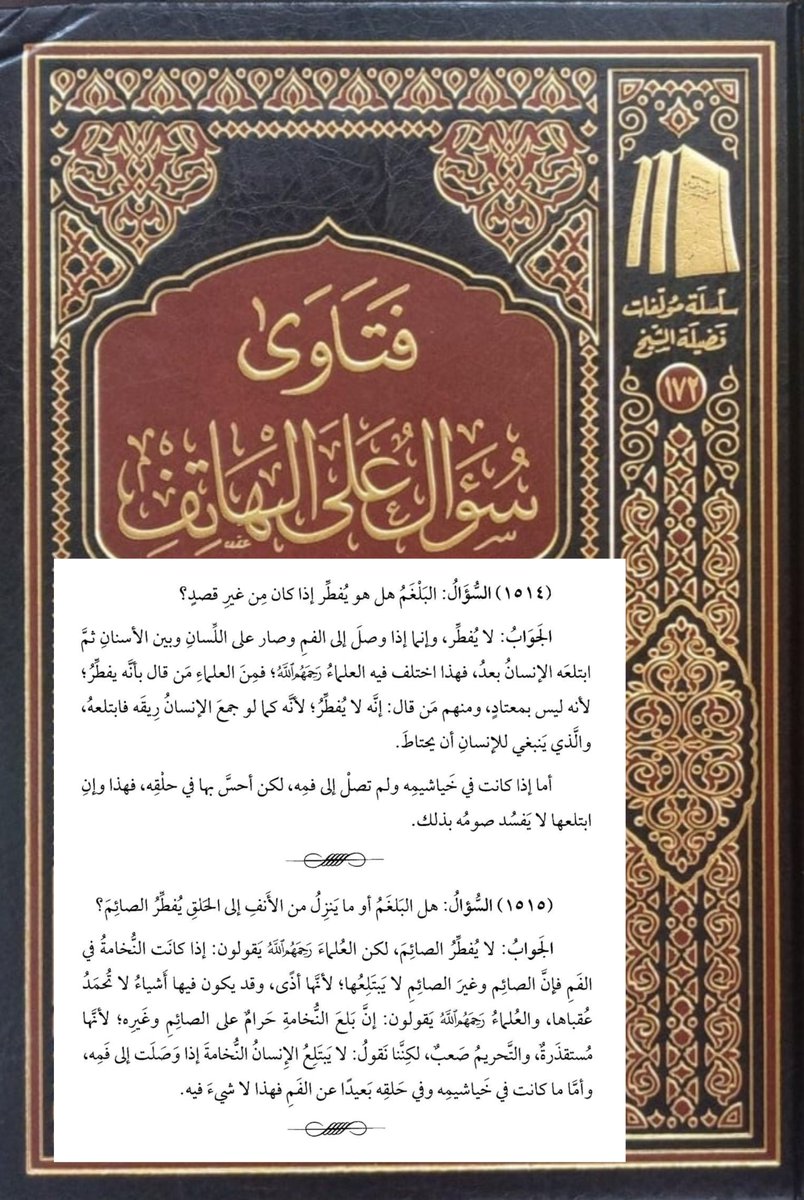 فَتَاوَى
سُؤَال عَلَى الهَاتِفِ
سِلْسِلَة مُؤلّفات
فَضيلَة الشّيْخ
١٧٢
(١٥١٤) السُّؤَالُ: البَلْغَمُ هل هو يُفطِّر إذا كان مِن غيرِ قصدٍ؟
الجَوابُ: لا يُفطِّر، وإنما إذا وصلَ إلى الفمِ وصار على اللِّسانِ وبين الأسنانِ ثمَّ
ابتلعَه الإنسانُ بعدُ، فهذا اختلف فيه العلماءُ رَحِمَهُمُ اللَّهُ؛ فمِنَ العلماءِ مَن قال بأنَّه يفطِّرُ؛
لأنه ليس بمعتادٍ، ومنهم مَن قال: إنَّه لا يُفطِّرُ؛ لأنَّه كما لو جمعَ الإنسانُ رِيقَه فابتلعهُ،
والَّذي يَنبغي للإنسانِ أن يحتاطَ.
أما إذا كانت في خَياشيمِه ولم تصلْ إلى فمِه، لكن أحسَّ بها في حلْقِه، فهذا وإنِ
ابتلعها لا يَفسُد صومُه بذلك.
(١٥١٥) السُّؤالُ: هل البَلغَمُ أو ما يَنزِلُ من الأَنفِ إلى الحَلقِ يُفطِّرُ الصائِمَ؟
الجَوابُ: لا يُفطِّرُ الصائِمَ، لكن العُلماءَ رَحِمَهُمُ اللَّهُ يَقولون: إذا كانَت النُّخامةُ في
الفَمِ فإنَّ الصائِم وغيرَ الصائِمِ لا يَبتَلِعُها؛ لأنَّها أذًى، وقد يكون فيها أَشياءُ لا تُحمَدُ
عُقباها، والعُلماءُ رَحِمَهُمُ اللَّهُ يَقولون: إنَّ بَلعَ النُّخامةِ حَرامٌ على الصائِمِ وغَيرِه؛ لأنَّها
مُستقذَرةٌ، والتَّحريمُ صَعبٌ، لكِنَّنا نَقولُ: لا يَبتَلِعُ الإِنسانُ النُّخامةَ إذا وَصَلَت إلى فَمِه،
وأمَّا ما كانت في خَياشيمِه وفي حَلقِه بَعيدًا عن الفَمِ فهذا لا شيءَ فيه.